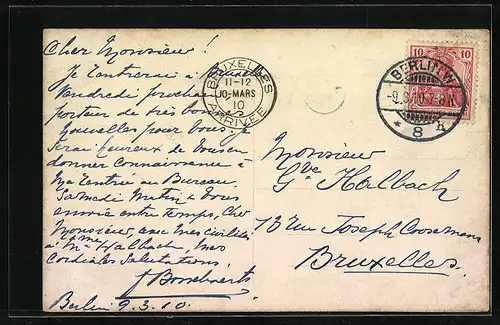 Cher Monsieur!
Je rentrerai à Bruxelles
Vendredi prochain
porteur de très bonnes
nouvelles pour vous. Je
serai heureux de vous en
donner connaissance à
ma rentrée au Bureau.
Samedi matin à vous
envoie entre temps, Cher
Monsieur, avec mes civilités
à Mme Halbach, mes
cordiales salutations.
Berlin 9.3.10.
BRUXELLES
11-12
10-MARS
10
ARRIVÉE
10 10
BERLIN W
-9.3.10.7-8N
* 8 k
Monsieur
Gve Halbach
13 rue Joseph Coosemans
Bruxelles.